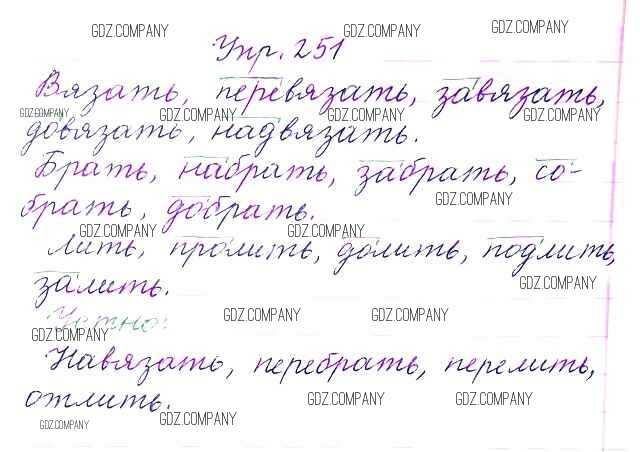 GDZ.COMPANY
GDZ.COMPANY GDZ.COMPANY
Упр. 251
Вязать, перевязать, завязать,
GDZ.COMPANY GDZ.COMPANY GDZ.COMPANY GDZ.COMPANY
довязать, надвязать.
Брать, набрать, забрать, со-
GDZ.COMPANY
брать, добрать.
GDZ.COMPANY GDZ.COMPANY
Лить, пролить, долить, подлить,
залить.
GDZ.COMPANY
Устно:
GDZ.COMPANY GDZ.COMPANY
GDZ.COMPANY
Навязать, перебрать, перелить,
отлить.
GDZ.COMPANY GDZ.COMPANY
GDZ.COMPANY GDZ.COMPANY